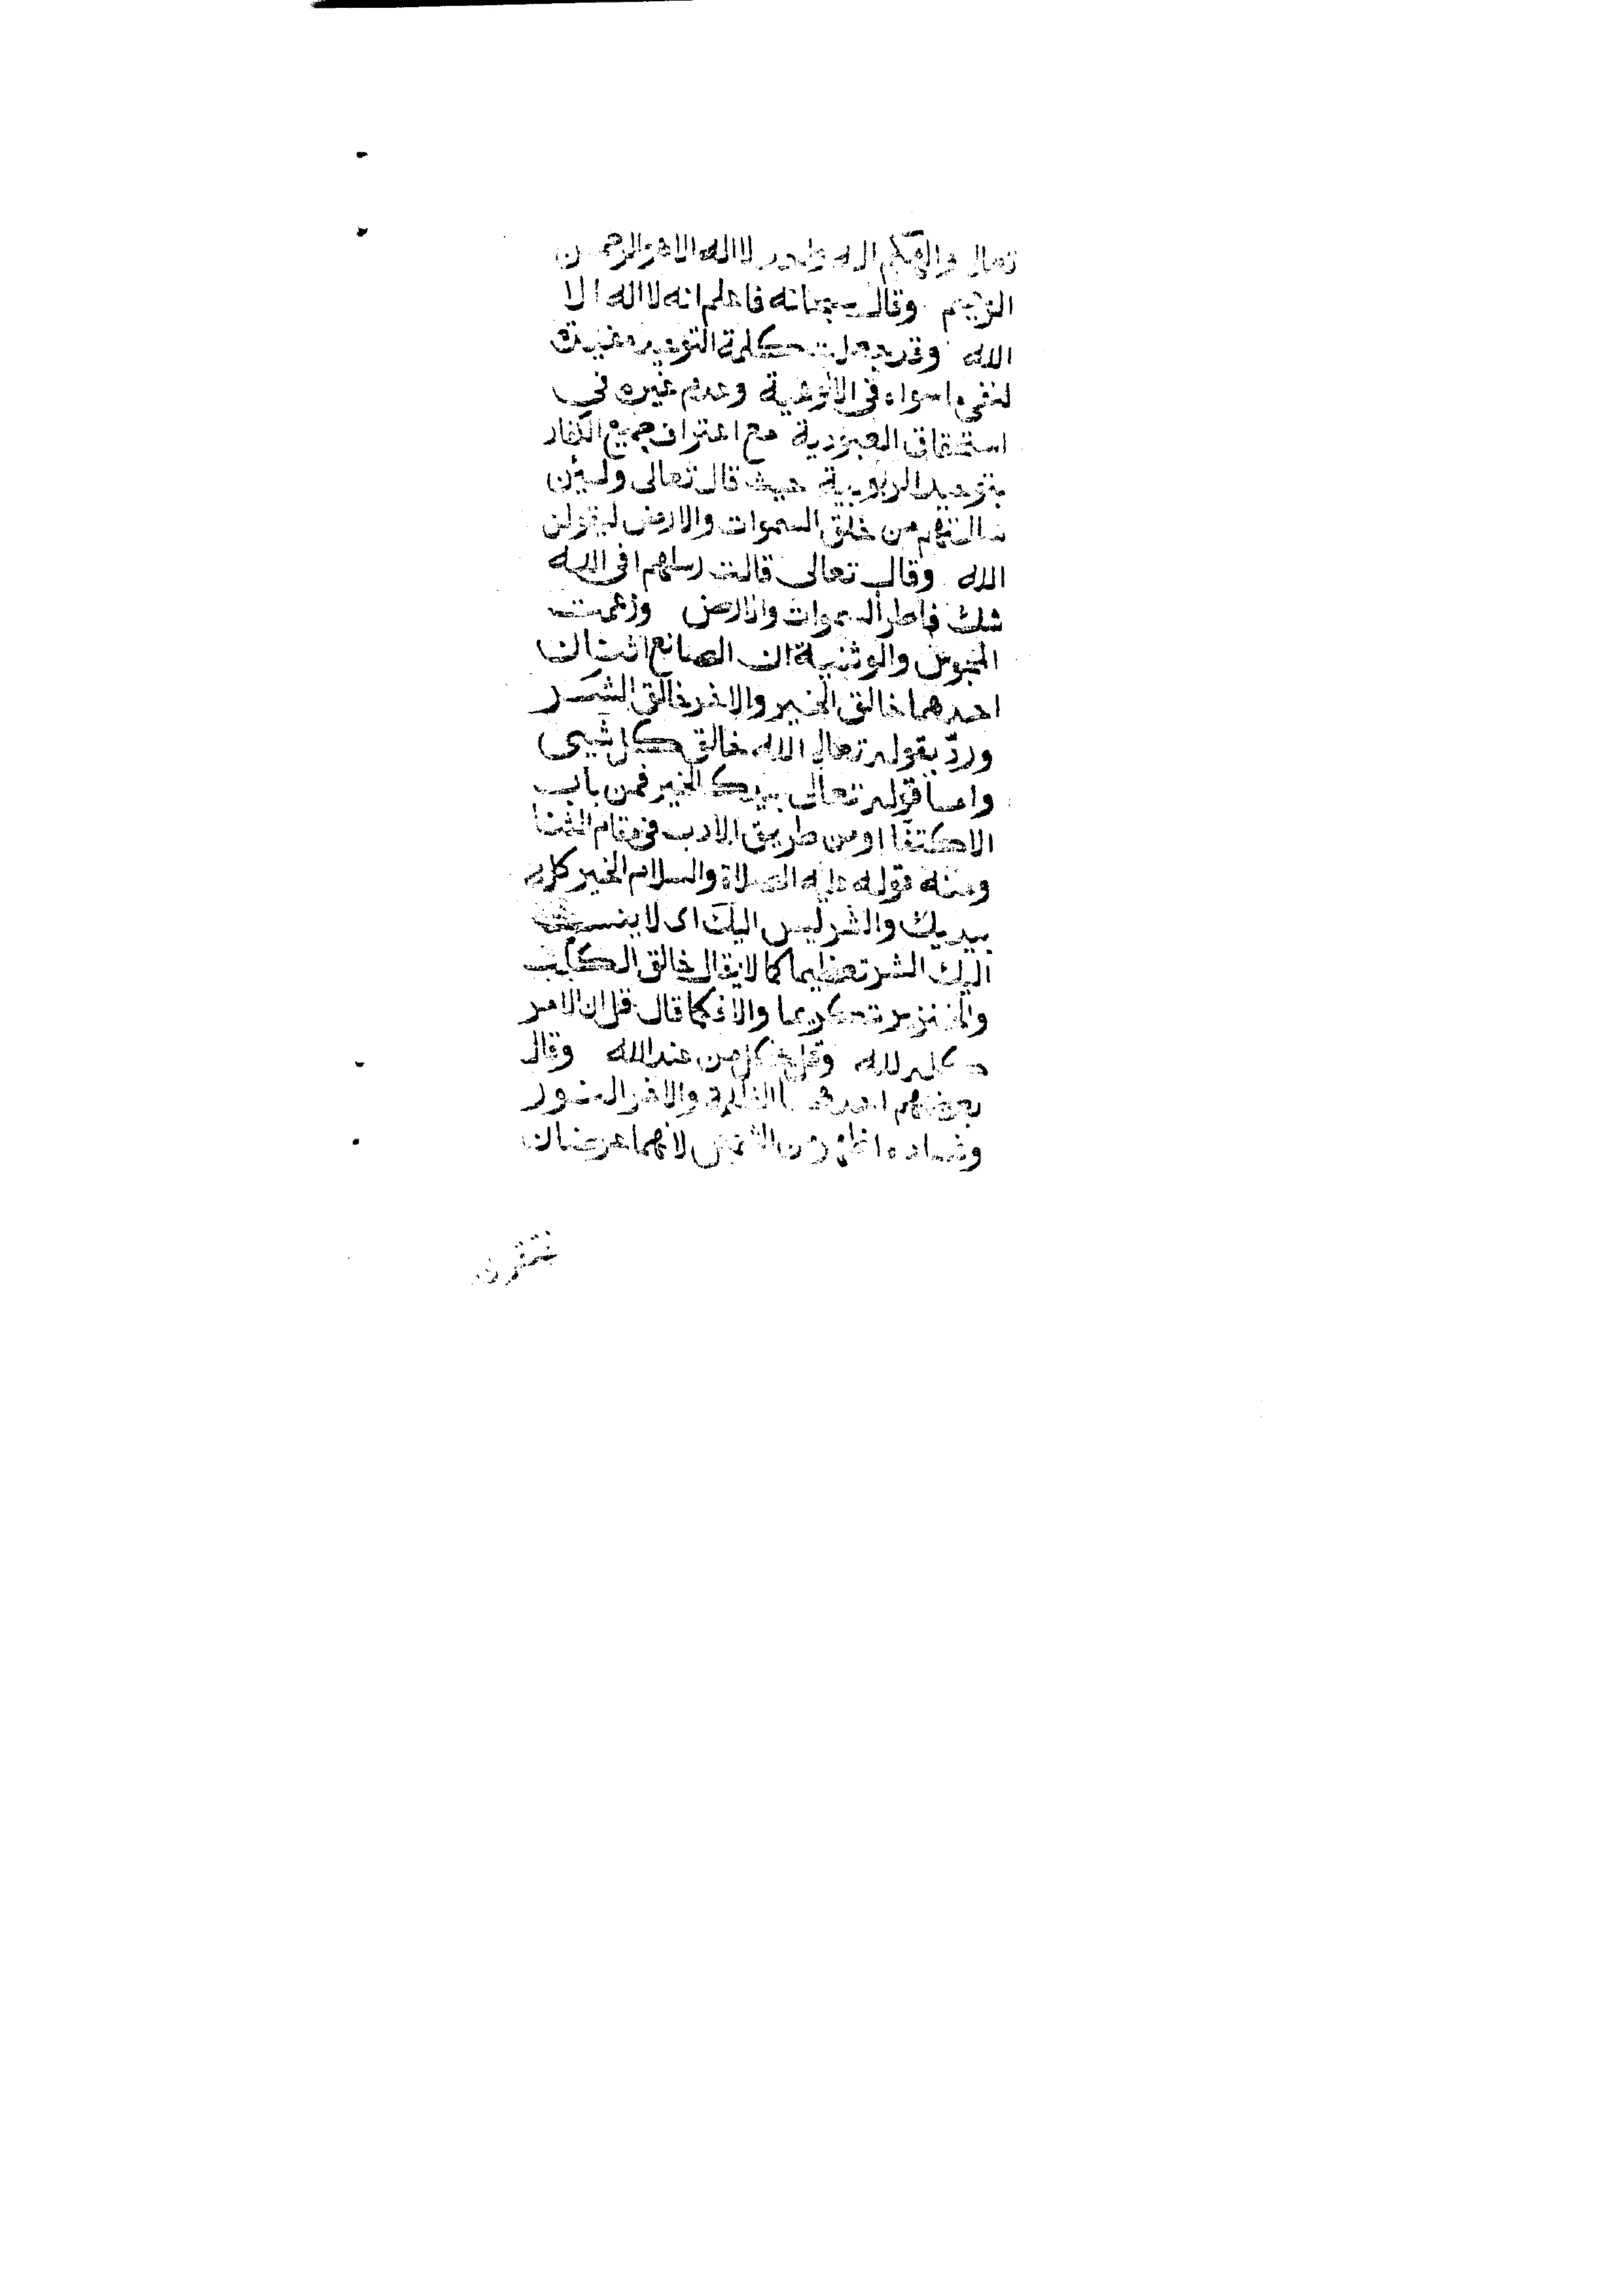 تعالى والهكم اله واحد لا اله الا هو الرحمن
الرحيم وقال سبحانه فاعلم انه لا اله الا
الله وقد جعلت كلمة التوحيد مفيدة
لنفي ما سواه في الالوهية وعدم غيره في
استحقاق العبودية مع اعتراف جميع الكفار
بتوحيد الربوبية حيث قال تعالى ولئن
سالتهم من خلق السموات والارض ليقولن
الله وقال تعالى قالت رسلهم افي الله
شك فاطر السموات والارض وزعمت
المجوس والوثنية ان الصانع اثنان
احدهما خالق الخير والاخر خالق الشر
وردّ بقوله تعالى الله خالق كل شيى
واما قوله تعالى بيدك الخير فمن باب
الاكتفا او من طريق الادب في مقام الثنا
ومنه قوله عليه الصلاة والسلام الخير كله
بيديك والشر ليس اليك اى لا ينسب
اليك الشر تعظيما كما لا يقال خالق الكلب
والخنزير تكريما والا فكما قال قل ان الامر
كله لله وقل كل من عند الله وقال
بعضهم احدهما الظلمة والاخر النور
وفساده اظهر من الشمس لانهما عرضان